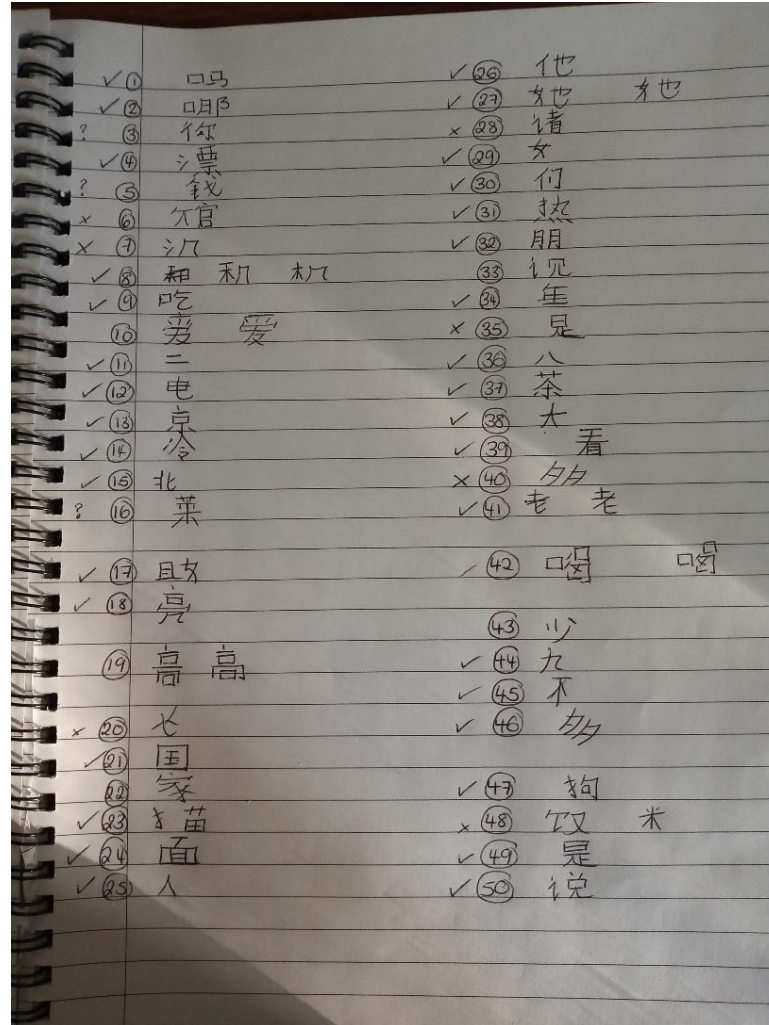 ✓ ① 吗
✓ ② 哪
? ③ 你
✓ ④ 漂
? ⑤ 钱
× ⑥
× ⑦ 氵几
✓ ⑧ 和 机 机
✓ ⑨ 吃
⑩ 爱 爱
✓ ⑪ 二
✓ ⑫ 电
✓ ⑬ 京
✓ ⑭ 冷
✓ ⑮ 北
? ⑯ 菜
✓ ⑰ 且女
✓ ⑱ 亮
⑲ 高 高
× ⑳
✓ ㉑ 国
㉒ 家
✓ ㉓ 猫
✓ ㉔ 面
✓ ㉕ 人
✓ ㉖ 他
✓ ㉗ 她 她
× ㉘ 诸
✓ ㉙ 女
✓ ㉚ 们
✓ ㉛ 热
✓ ㉜ 朋
㉝
✓ ㉞ 年
× ㉟ 是
✓ ㊱ 八
✓ ㊲ 茶
✓ ㊳ 大
✓ ㊴ 看
× ㊵ 多
✓ ㊶ 老 老
✓ ㊷ 喝 喝
㊸ 少
✓ ㊹ 九
✓ ㊺ 不
✓ ㊻ 多
✓ ㊼ 狗
× ㊽ 饭 米
✓ ㊾ 是
✓ ㊿ 说